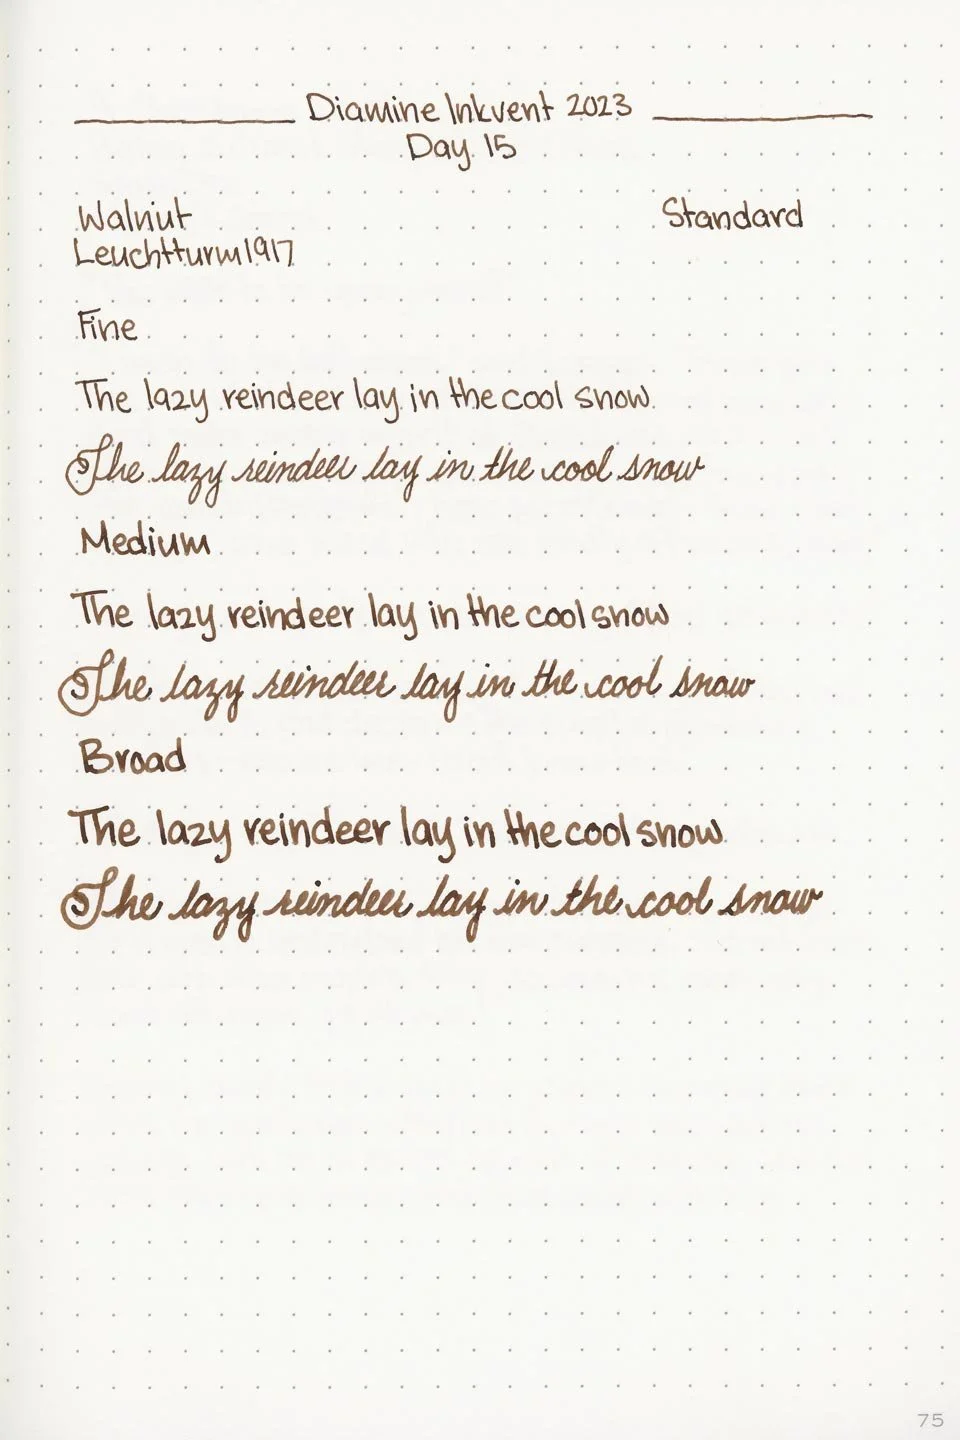 Diamine Inkvent 2023
Day 15
Walnut Standard
Leuchtturm1917
Fine
The lazy reindeer lay in the cool snow
The lazy reindeer lay in the cool snow
Medium
The lazy reindeer lay in the cool snow
The lazy reindeer lay in the cool snow
Broad
The lazy reindeer lay in the cool snow
The lazy reindeer lay in the cool snow
75